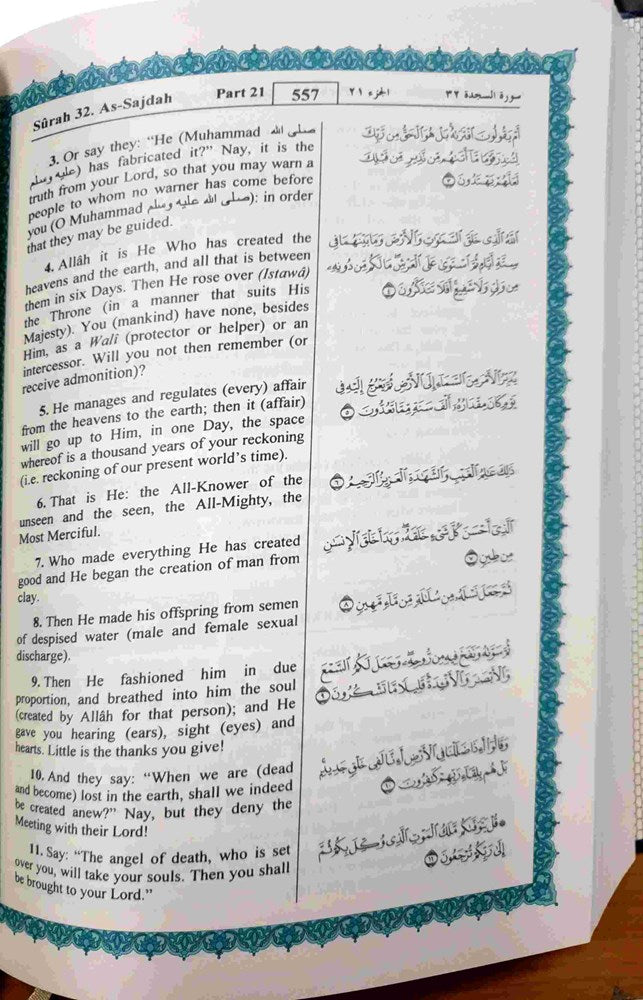 Sûrah 32. As-Sajdah Part 21 557 الجزء ٢١ سورة السجدة ٣٢
3. Or say they: “He (Muhammad صلى الله
عليه وسلم) has fabricated it?” Nay, it is the
truth from your Lord, so that you may warn a
people to whom no warner has come before
you (O Muhammad صلى الله عليه وسلم): in order
that they may be guided.
4. Allâh it is He Who has created the
heavens and the earth, and all that is between
them in six Days. Then He rose over (Istawâ)
the Throne (in a manner that suits His
Majesty). You (mankind) have none, besides
Him, as a Walî (protector or helper) or an
intercessor. Will you not then remember (or
receive admonition)?
5. He manages and regulates (every) affair
from the heavens to the earth; then it (affair)
will go up to Him, in one Day, the space
whereof is a thousand years of your reckoning
(i.e. reckoning of our present world’s time).
6. That is He: the All-Knower of the
unseen and the seen, the All-Mighty, the
Most Merciful.
7. Who made everything He has created
good and He began the creation of man from
clay.
8. Then He made his offspring from semen
of despised water (male and female sexual
discharge).
9. Then He fashioned him in due
proportion, and breathed into him the soul
(created by Allâh for that person); and He
gave you hearing (ears), sight (eyes) and
hearts. Little is the thanks you give!
10. And they say: “When we are (dead
and become) lost in the earth, shall we indeed
be created anew?” Nay, but they deny the
Meeting with their Lord!
11. Say: “The angel of death, who is set
over you, will take your souls. Then you shall
be brought to your Lord.”
أَمْ يَقُولُونَ ٱفْتَرَىٰهُ بَلْ هُوَ ٱلْحَقُّ مِن رَّبِّكَ
لِتُنذِرَ قَوْمًا مَّآ أَتَىٰهُم مِّن نَّذِيرٍ مِّن قَبْلِكَ
لَعَلَّهُمْ يَهْتَدُونَ ٣
ٱللَّهُ ٱلَّذِى خَلَقَ ٱلسَّمَٰوَٰتِ وَٱلْأَرْضَ وَمَا بَيْنَهُمَا فِى
سِتَّةِ أَيَّامٍ ثُمَّ ٱسْتَوَىٰ عَلَى ٱلْعَرْشِ مَا لَكُم مِّن دُونِهِۦ
مِن وَلِىٍّ وَلَا شَفِيعٍ أَفَلَا تَتَذَكَّرُونَ ٤
يُدَبِّرُ ٱلْأَمْرَ مِنَ ٱلسَّمَآءِ إِلَى ٱلْأَرْضِ ثُمَّ يَعْرُجُ إِلَيْهِ فِى
يَوْمٍ كَانَ مِقْدَارُهُۥٓ أَلْفَ سَنَةٍ مِّمَّا تَعُدُّونَ ٥
ذَٰلِكَ عَٰلِمُ ٱلْغَيْبِ وَٱلشَّهَٰدَةِ ٱلْعَزِيزُ ٱلرَّحِيمُ ٦
ٱلَّذِىٓ أَحْسَنَ كُلَّ شَىْءٍ خَلَقَهُۥ وَبَدَأَ خَلْقَ ٱلْإِنسَٰنِ
مِن طِينٍ ٧
ثُمَّ جَعَلَ نَسْلَهُۥ مِن سُلَٰلَةٍ مِّن مَّآءٍ مَّهِينٍ ٨
ثُمَّ سَوَّىٰهُ وَنَفَخَ فِيهِ مِن رُّوحِهِۦ وَجَعَلَ لَكُمُ ٱلسَّمْعَ
وَٱلْأَبْصَٰرَ وَٱلْأَفْـِٔدَةَ قَلِيلًا مَّا تَشْكُرُونَ ٩
وَقَالُوٓا۟ أَءِذَا ضَلَلْنَا فِى ٱلْأَرْضِ أَءِنَّا لَفِى خَلْقٍ جَدِيدٍ
بَلْ هُم بِلِقَآءِ رَبِّهِمْ كَٰفِرُونَ ١٠
* قُلْ يَتَوَفَّىٰكُم مَّلَكُ ٱلْمَوْتِ ٱلَّذِى وُكِّلَ بِكُمْ ثُمَّ
إِلَىٰ رَبِّكُمْ تُرْجَعُونَ ١١